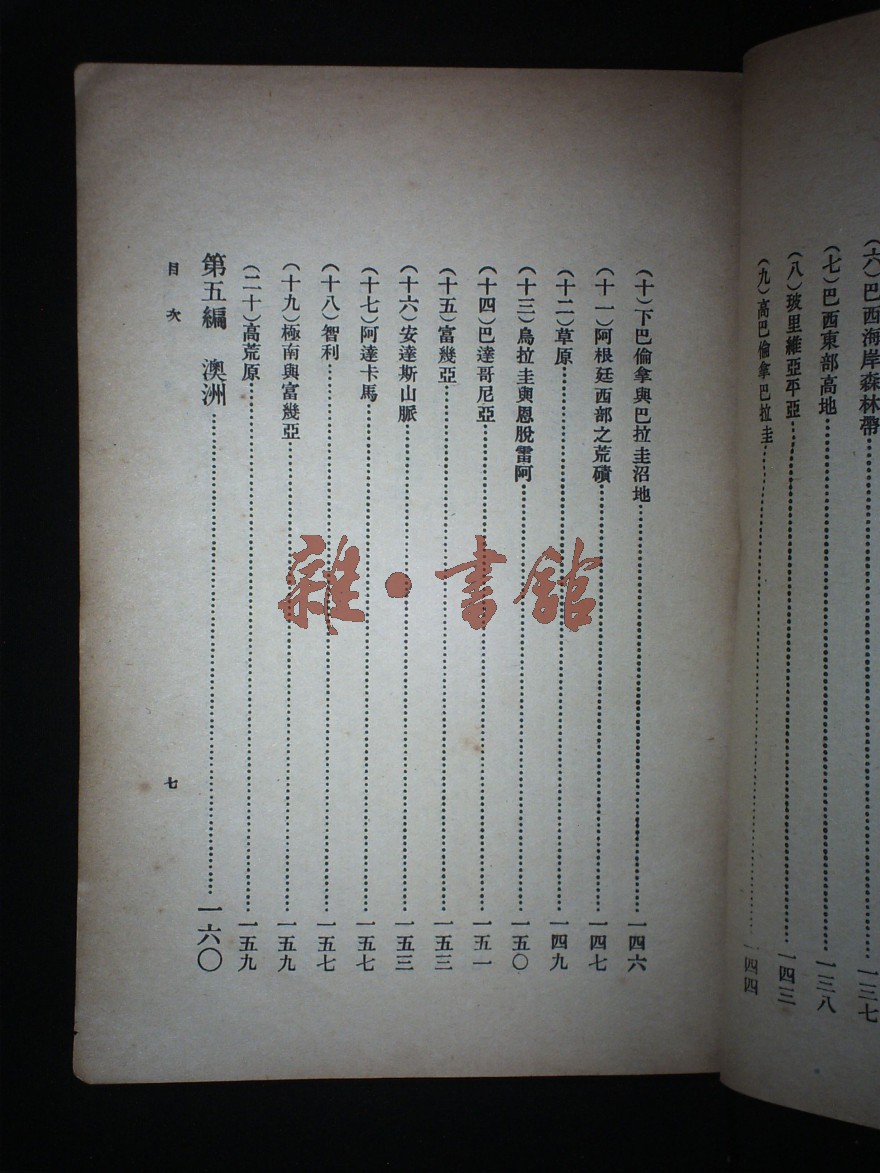 (六)巴西海岸森林帶……一三七
(七)巴西東部高地……一三八
(八)玻里維亞平亞……一四三
(九)高巴倫拿巴拉圭……一四四
(十)下巴倫拿與巴拉圭沼地……一四六
(十一)阿根廷西部之荒磧……一四七
(十二)草原……一四九
(十三)烏拉圭與恩脫雷阿……一五〇
(十四)巴達哥尼亞……一五一
(十五)富幾亞……一五三
(十六)安達斯山脈……一五三
(十七)阿達卡馬……一五七
(十八)智利……一五七
(十九)極南與富幾亞……一五九
(二十)高荒原……一五九
第五編 澳洲……一六〇
目次
七
雜·書館